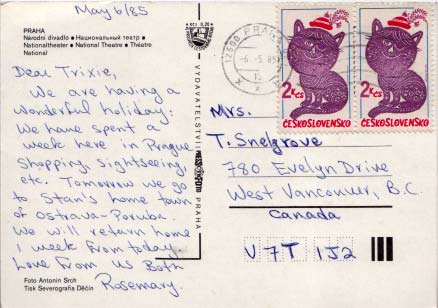 May 6/85
PRAHA
Národní divadlo • Национальный театр •
Nationaltheater • National Theatre • Théatre
National
Dear Trixie,
We are having a
wonderful holiday.
We have spent a
week here in Prague
shopping, sightseeing,
etc. Tomorrow we go
to Stan's home town
of Ostrava-Poruba.
We will return home
1 week from today.
Love from us Both
Rosemary.
Foto Antonín Srch
Tisk Severografia Děčín
VYDAVATELSTVÍ
PRAHA
PRAHA
-6.-5.85
2 Kčs
ČESKOSLOVENSKO
2 Kčs
ČESKOSLOVENSKO
Mrs.
T. Snelgrove
780 Evelyn Drive
West Vancouver, B.C.
Canada
V7T 1J2